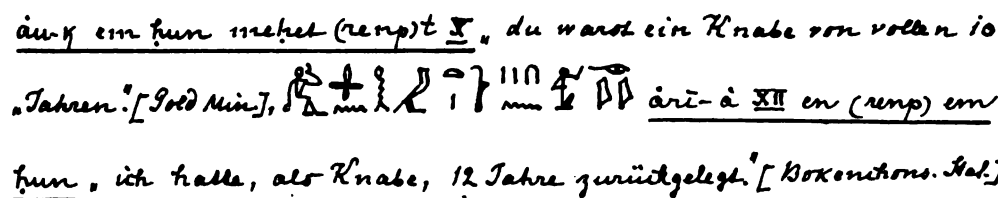 áu-k em ḥun meḥet (renp)t X „du warst ein Knabe von vollen 10
„Jahren." [Gold Min.], ári-á XII en (renp) em
ḥun „ich hatte, als Knabe, 12 Jahre zurückgelegt." [Bokenchons. Stat.]